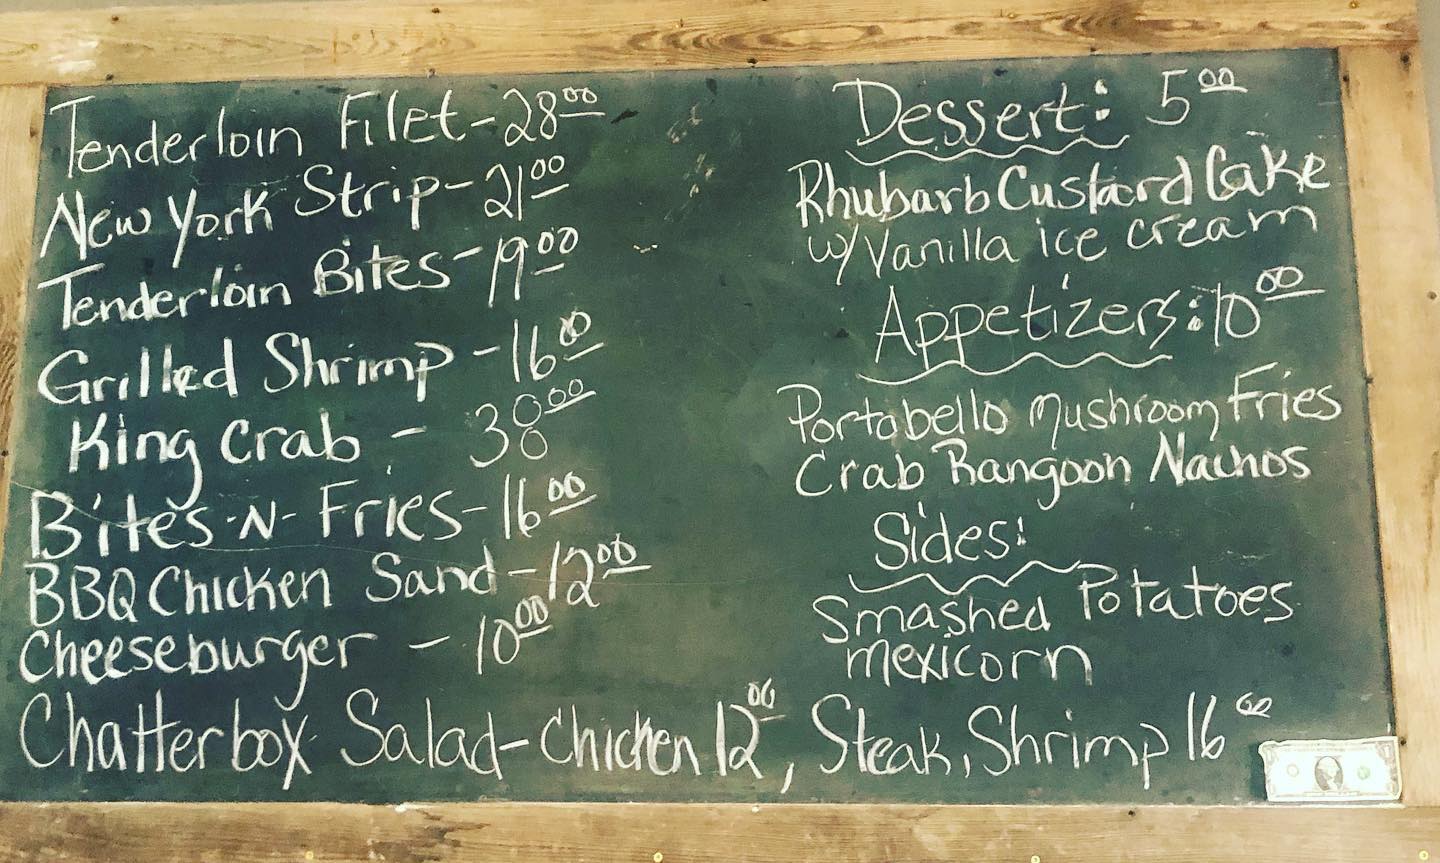 Tenderloin Filet - 28.00
New York Strip - 21.00
Tenderloin Bites - 19.00
Grilled Shrimp - 16.00
King Crab - 38.00
Bites -N- Fries - 16.00
BBQ Chicken Sand - 12.00
Cheeseburger - 10.00
Chatterbox Salad - Chicken 12.00, Steak, Shrimp 16.00
Dessert: 5.00
Rhubarb Custard Cake
w/ Vanilla ice cream
Appetizers: 10.00
Portabello Mushroom Fries
Crab Rangoon Nachos
Sides:
Smashed Potatoes
mexicorn